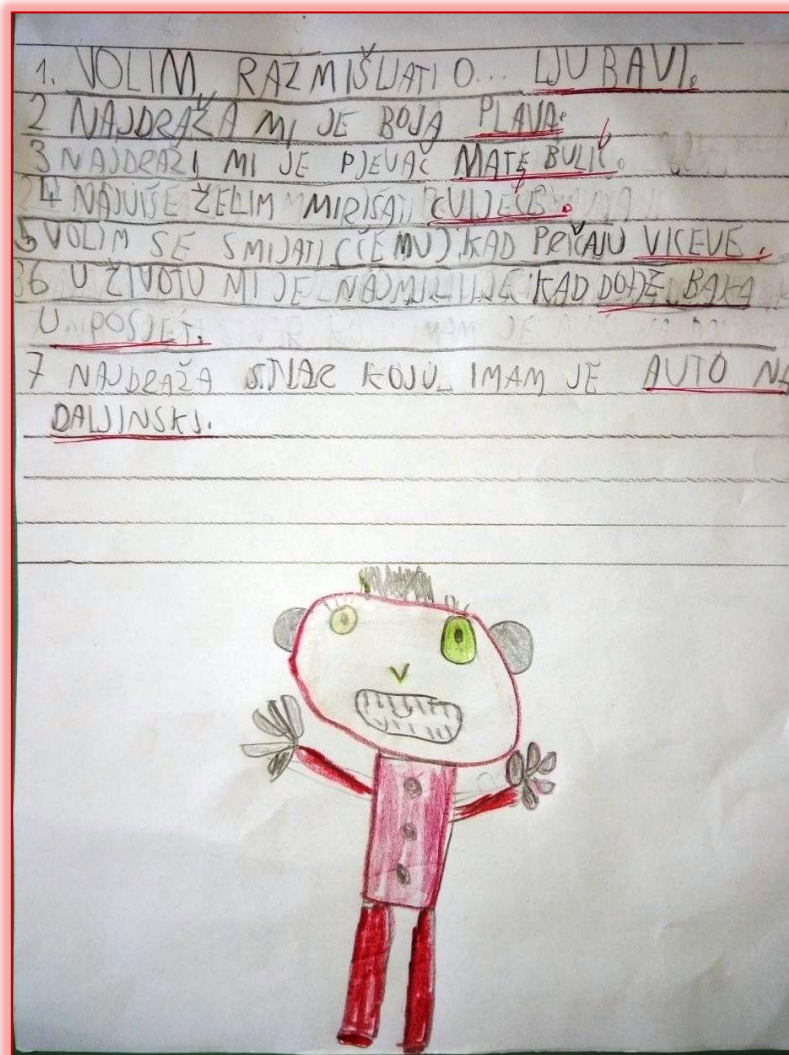 1. VOLIM RAZMIŠLJATI O... LJUBAVI.
2 NAJDRAŽA MI JE BOJA PLAVA.
3 NAJDRAŽI MI JE PJEVAČ MATE BULIĆ.
4 NAJVIŠE ŽELIM MIRISATI CVIJEĆE.
5 VOLIM SE SMIJATI (ČEMU) KAD PRIČAJU VICEVE.
6 U ŽIVOTU MI JE NAJMILIJE KAD DOĐE BAKA
U POSJET.
7 NAJDRAŽA STVAR KOJU IMAM JE AUTO NA
DALJINSKI.